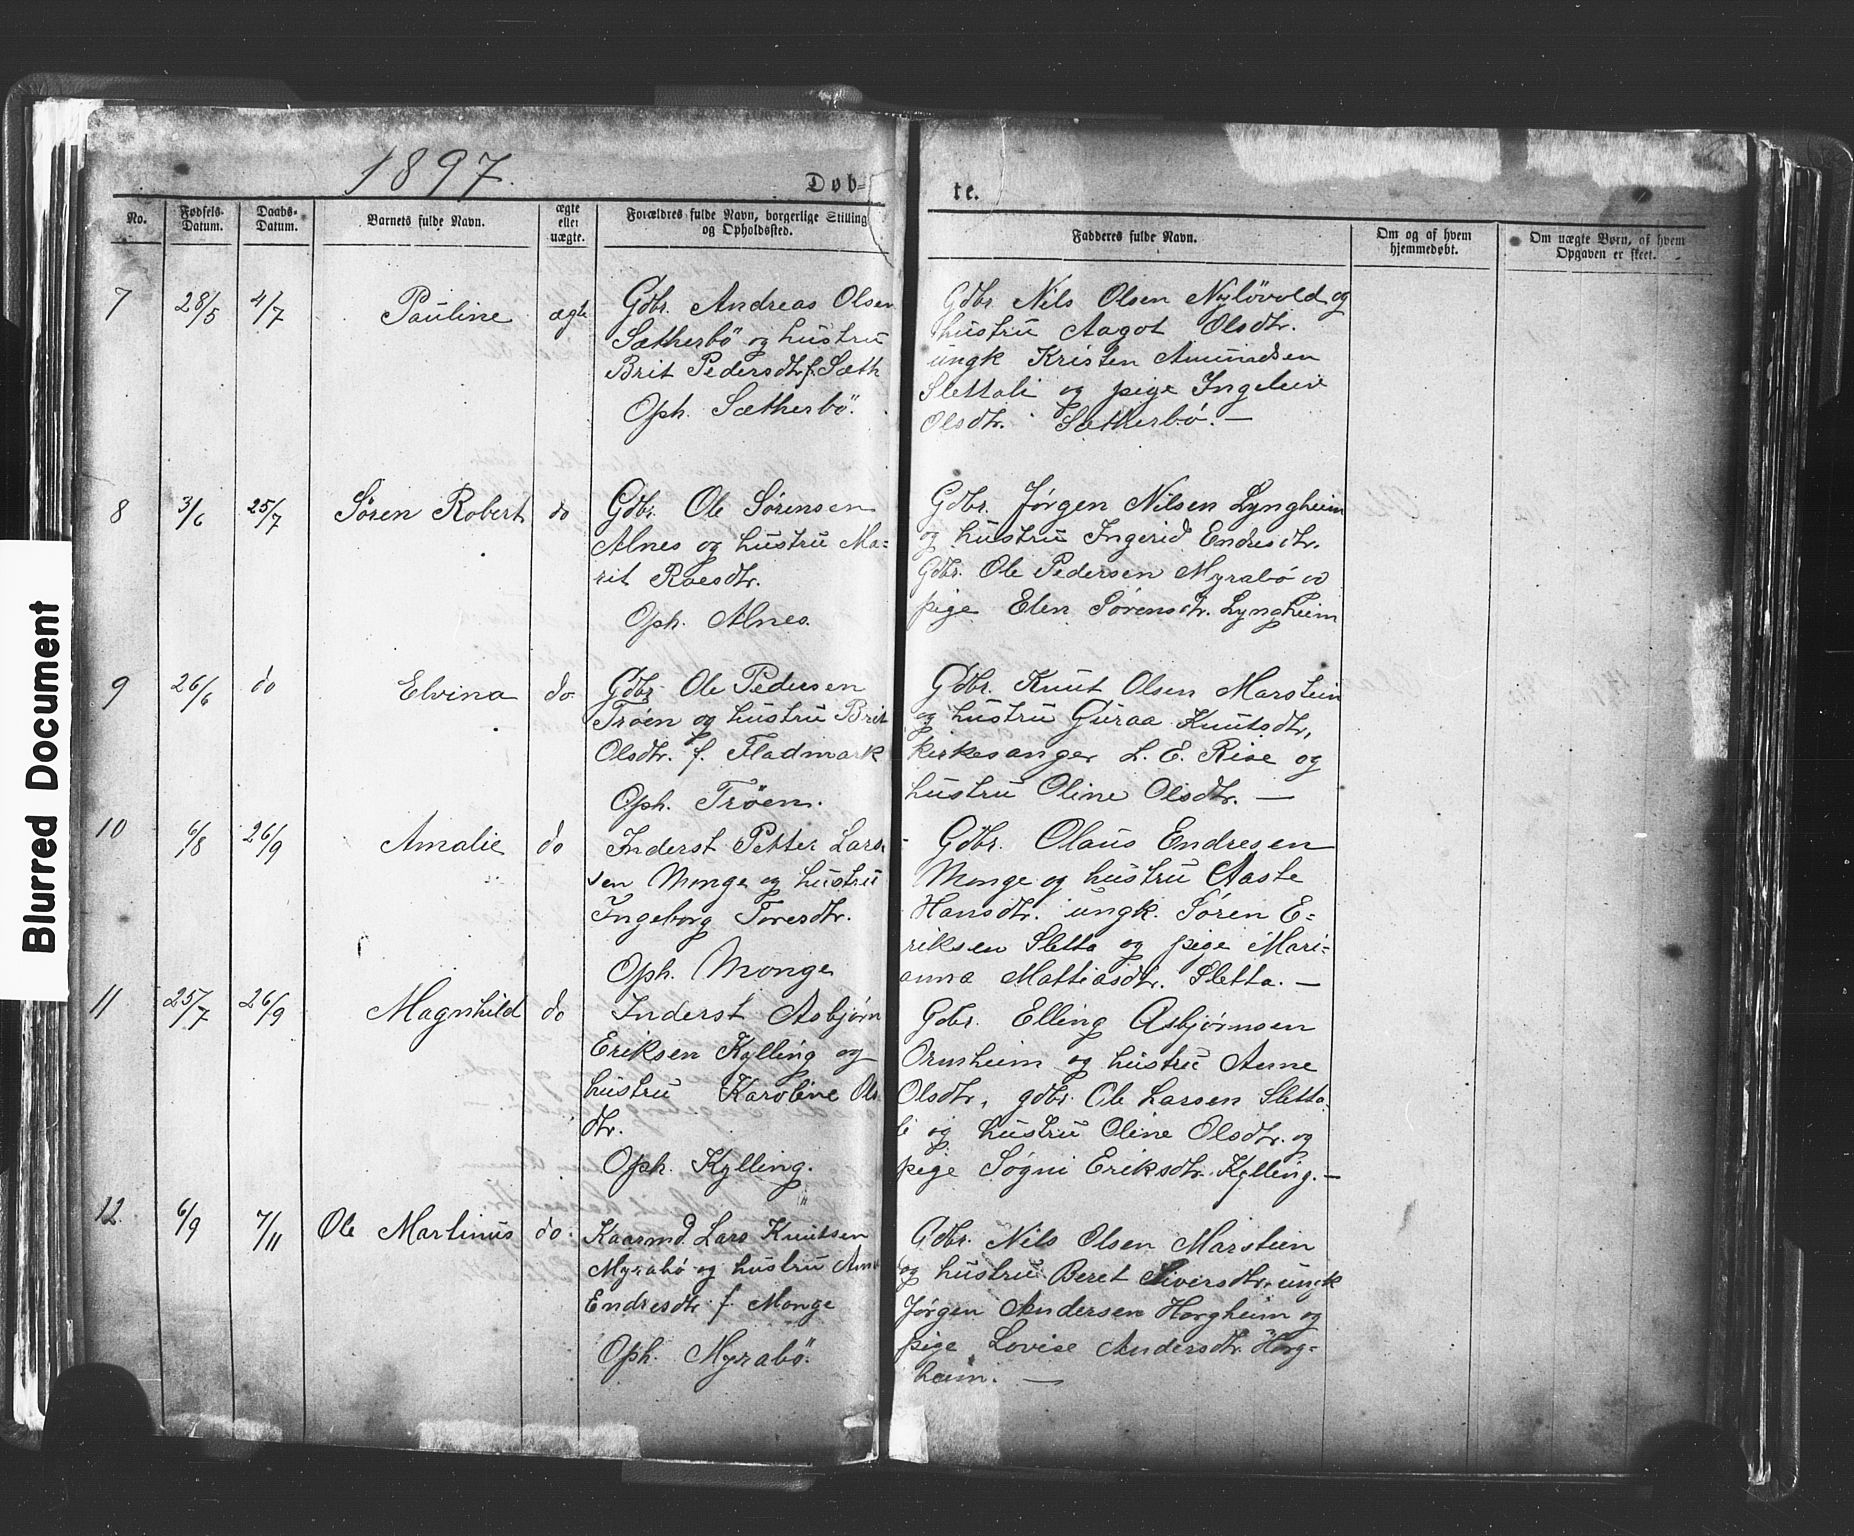 1897.
Døb=
te.
No.
Fødsels-
Datum.
Daabs-
Datum.
Barnets fulde Navn.
ægte
eller
uægte.
Forældres fulde Navn, borgerlige Stilling
og Opholdssted.
Fadderes fulde Navn.
Om og af hvem
hjemmedøbt.
Om uægte Børn, af hvem
Opgaven er skeet.
7 28/5 4/7 Pauline ægte
Gdbr. Andreas Olsen
Sætherbö og hustru
Brit Pedersdtr f. Sæth
Oph. Sætherbö.
Gdbr. Nils Olsen Nyløvold og
hustru Aagot Olsdtr.
ungk Kristen Amundsen
Slettali og pige Ingeleiv
Olsdtr. Sætherbö. —
8 3/6 25/7 Søren Robert do
Gdbr. Ole Sørensen
Alnes og hustru Ma=
rit Roesdtr.
Oph. Alnes.
Gdbr. Jørgen Nilsen Lyngheim
og hustru Ingerid Endresdtr.
Gdbr. Ole Pedersen Myrabö
pige Elen Sørensdtr. Lyngheim
9 26/6 do Elvina do
Gdbr Ole Pedersen
Trøen og hustru Brit
Olsdtr. f. Fladmark
Oph. Trøen.
Gdbr. Knut Olsen Marstein
og hustru Guraa Knutsdtr,
kirkesanger L. E. Rise og
hustru Oline Olsdtr. —
10 6/8 26/9 Amalie do
Inderst Petter Lars
sen Monge og hustru
Ingeborg Toresdtr.
Oph. Monge
Gdbr. Olaus Endresen
Monge og hustru Aaste
Hansdtr. ungk. Søren E=
riksen Sletta og pige Mari=
anna Mattiasdtr. Sletta. —
11 25/7 26/9 Magnhild do
Inderst Asbjørn
Eriksen Kylling og
hustru Karoline Ols
dtr.
Oph. Kylling.
Gdbr. Elling Asbjørnsen
Ormheim og hustru Anne
Olsdtr, gdbr. Ole Larsen Sletta
li og hustru Oline Olsdtr. og
pige Søgni Eriksdtr. Kylling. —
12. 6/9 7/11 Ole Martinus do.
Kaarmd. Lars Knutsen
Myrabö og hustru Anne
Endresdtr f. Monge
Oph. Myrabö.
Gdbr. Nils Olsen Marstein
og hustru Beret Siversdtr. ungk
Jørgen Andersen Horgheim og
pige Lovise Andersdtr. Horg=
heim. —
Blurred Document